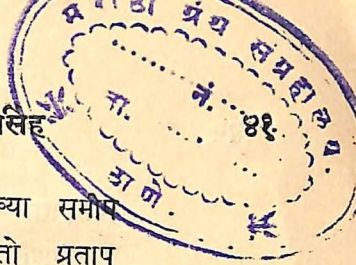 मराठी ग्रंथ संग्रहालय.
ना. नं.
ठाणे.
सिंह ४१
च्या समीप
तो प्रताप